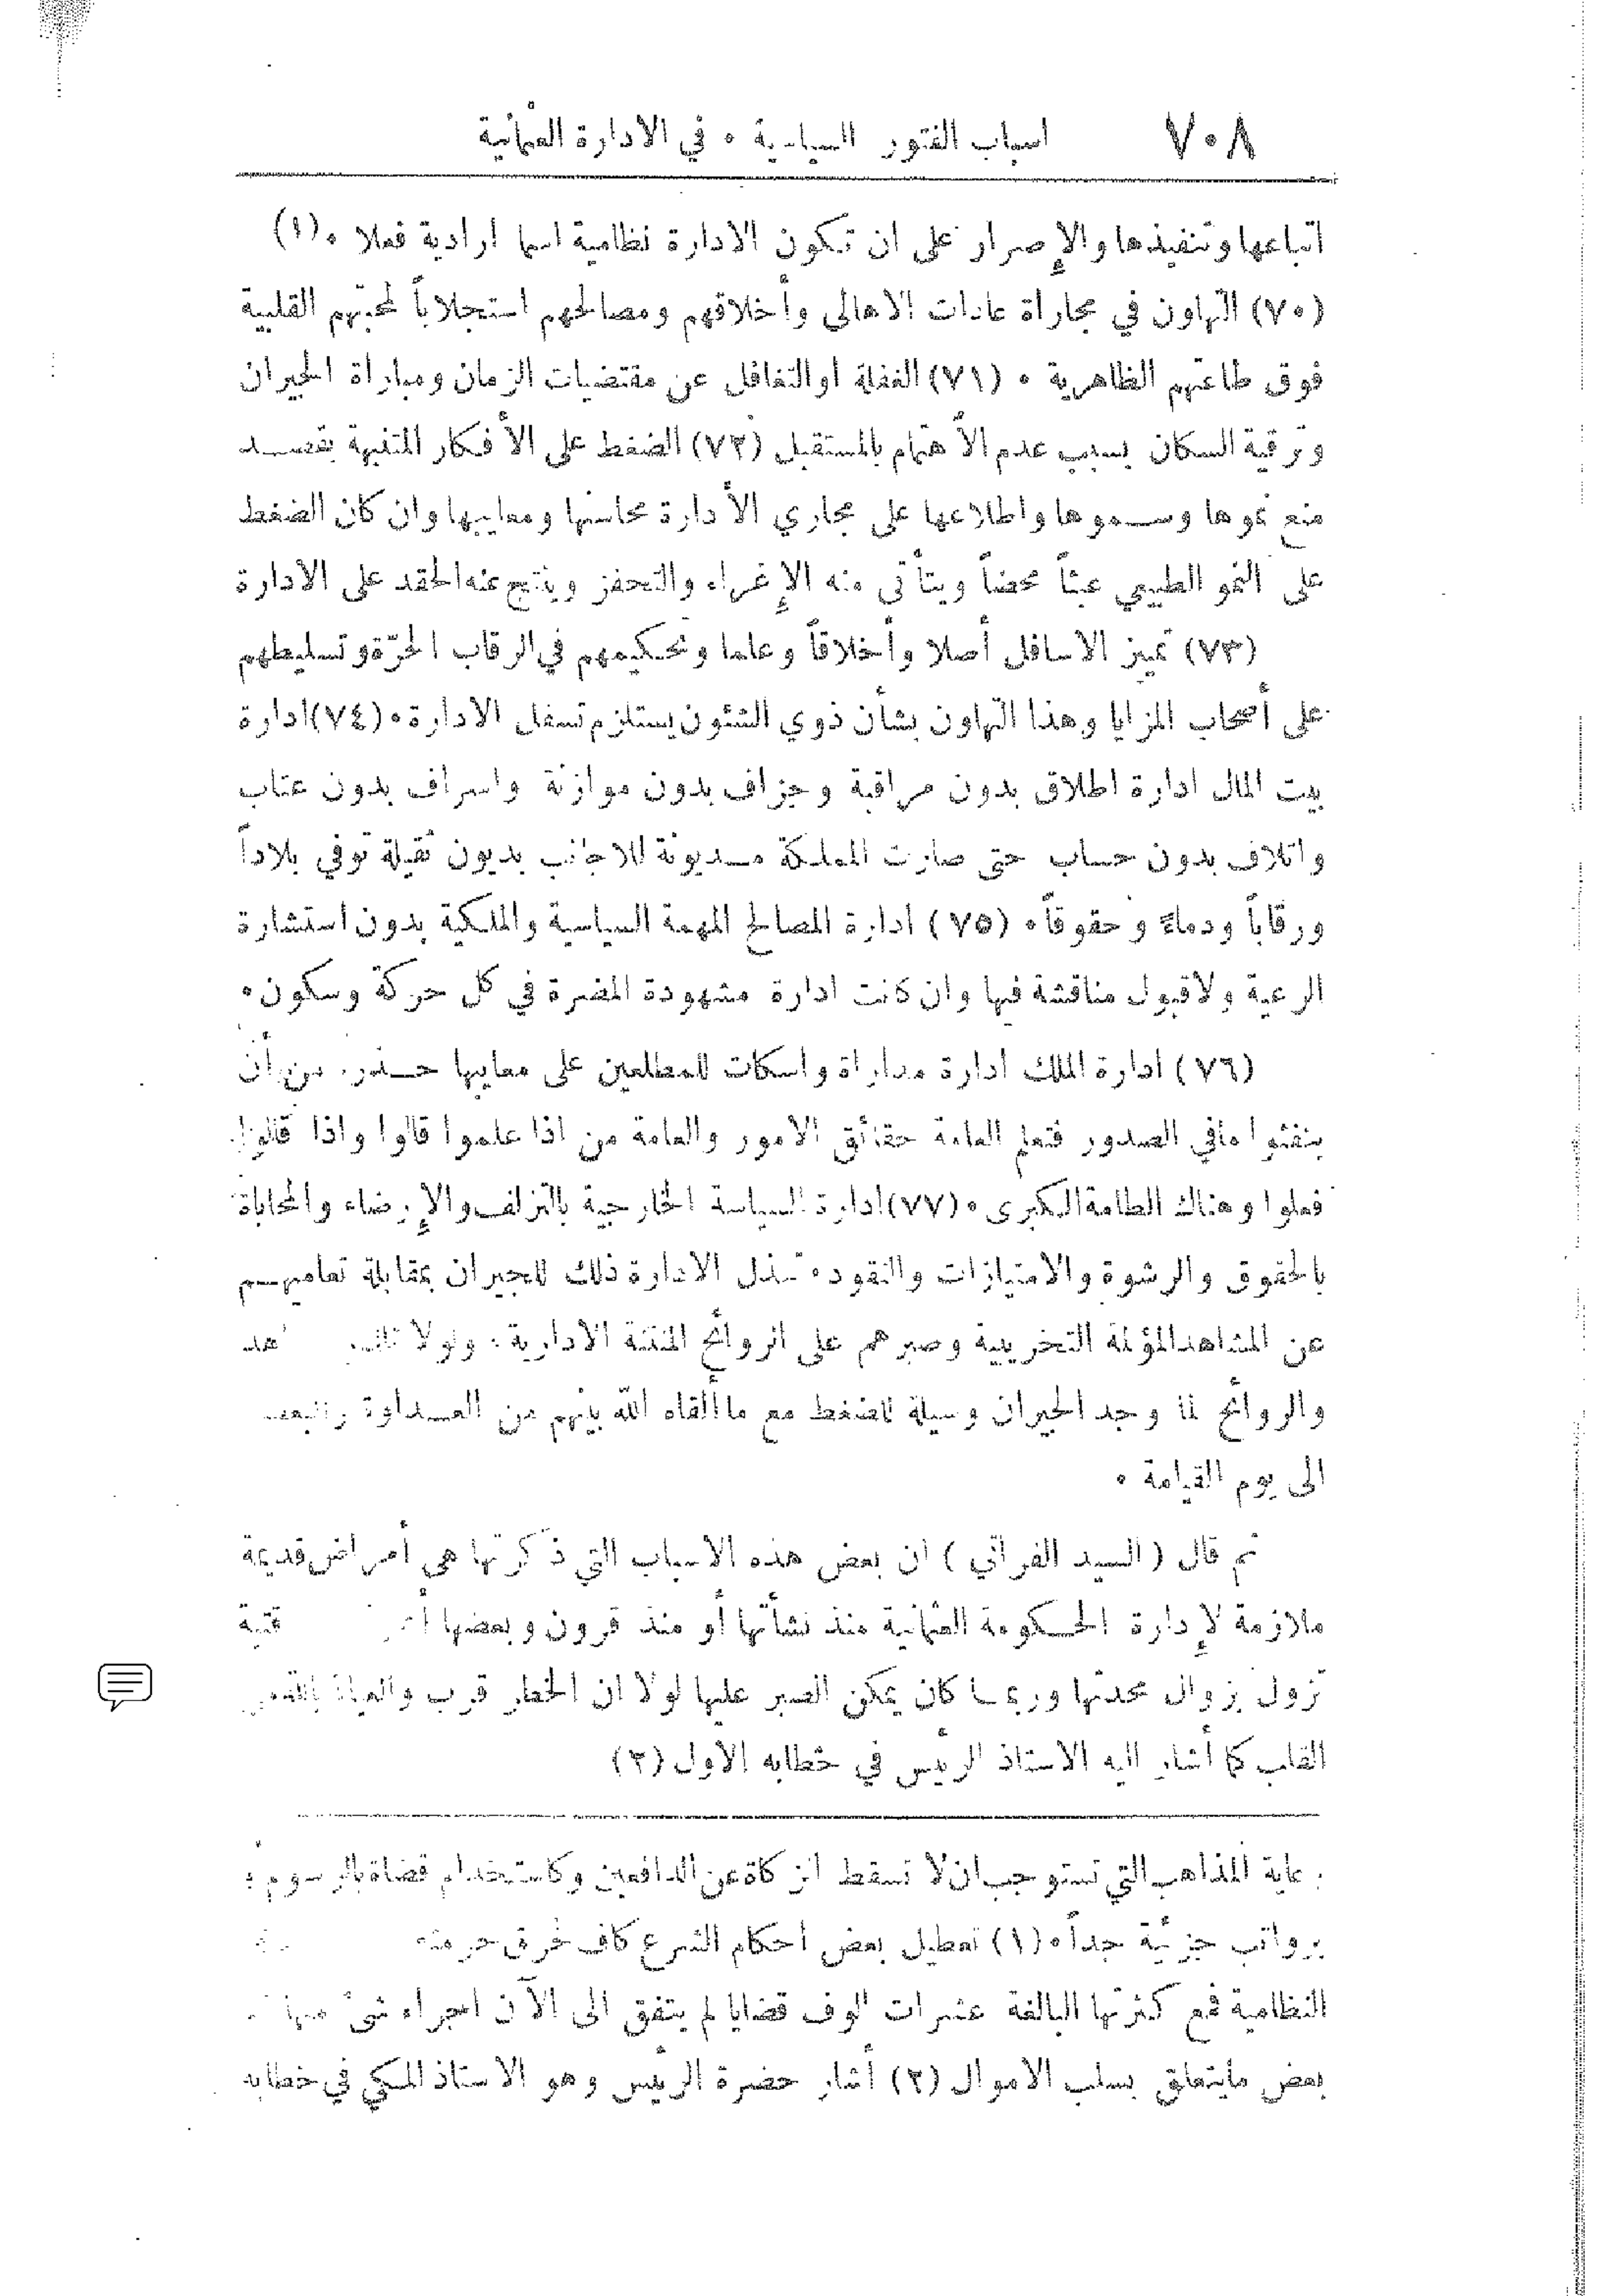 ٧٠٨ اسباب الفتور السياسية ٠ في الادارة العثمانية
اتباعها وتنفيذها والإصرار على ان تكون الادارة نظامية اسما ارادية فعلا ٠ (١)
(٧٠) التهاون في مجاراة عادات الاهالى وأخلاقهم ومصالحهم استجلاباً لمحبتهم القلبية
فوق طاعتهم الظاهرية ٠ (٧١) الغفلة او التغافل عن مقتضيات الزمان ومباراة الجيران
وترقية السكان بسبب عدم الاهتمام بالمستقبل (٧٢) الضغط على الأفكار المتنبهة بقصد
منع نموها وسموها واطلاعها على مجاري الأدارة محاسنها ومعايبها وان كان الضغط
على النمو الطبيعي عبثاً محضاً ويتأتى منه الإغراء والتحفز وينتج عنه الحقد على الادارة
(٧٣) تمييز الاسافل أصلا وأخلاقاً وعلما وتحكيمهم في الرقاب الحرّة وتسليطهم
على أصحاب المزايا وهذا التهاون بشأن ذوي الشئون يستلزم تسفل الادارة ٠ (٧٤) ادارة
بيت المال ادارة اطلاق بدون مراقبة وجزاف بدون موازنة واسراف بدون عتاب
واتلاف بدون حساب حتى صارت المملكة مديونة للاجانب بديون ثقيلة توفي بلاداً
ورقاباً ودماءً وحقوقاً ٠ (٧٥) ادارة المصالح المهمة السياسية والملكية بدون استشارة
الرعية ولا قبول مناقشة فيها وان كانت ادارة مشهودة المضرة في كل حركة وسكون ٠
(٧٦) ادارة الملك ادارة مداراة واسكات للمطلعين على معايبها حذرا من أن
ينفثوا ما في الصدور فتعلم العامة حقائق الامور والعامة من اذا علموا قالوا واذا قالوا
فعلوا وهناك الطامة الكبرى ٠ (٧٧) ادارة السياسة الخارجية بالتزلف والإرضاء والمحاباة
بالحقوق والرشوة والامتيازات والنقود ٠ تبذل الادارة ذلك للجيران بمقابلة تعاميهم
عن المشاهد المؤلمة التخريبية وصبرهم على الروائح المنتنة الادارية : ولولا تلك
والروائح لما وجد الجيران وسيلة للضغط مع ما ألقاه الله بينهم من العداوة
الى يوم القيامة ٠
ثم قال ( السيد الفراتي ) ان بعض هذه الاسباب التي ذكرتها هي أمراض قديمة
ملازمة لإدارة الحكومة العثمانية منذ نشأتها أو منذ قرون وبعضها
تزول بزوال محدثها وربما كان يمكن الصبر عليها لولا ان الخطر قرب والعياذ بالله
القلب كما أشار اليه الاستاذ الرئيس في خطابه الاول (٢)
عاية المذاهب التي تستوجب ان لا تسقط الزكاة عن الدافعين وكاستخدام قضاة بالرسوم
برواتب جزئية جداً ٠ (١) تعطيل بعض أحكام الشرع كاف لخرق حرمته
النظامية فمع كثرتها البالغة عشرات الوف قضايا لم يتفق الى الآن اجراء شئ منها
بعض ما يتعلق بسلب الاموال (٢) أشار حضرة الرئيس وهو الاستاذ المكي في خطابه